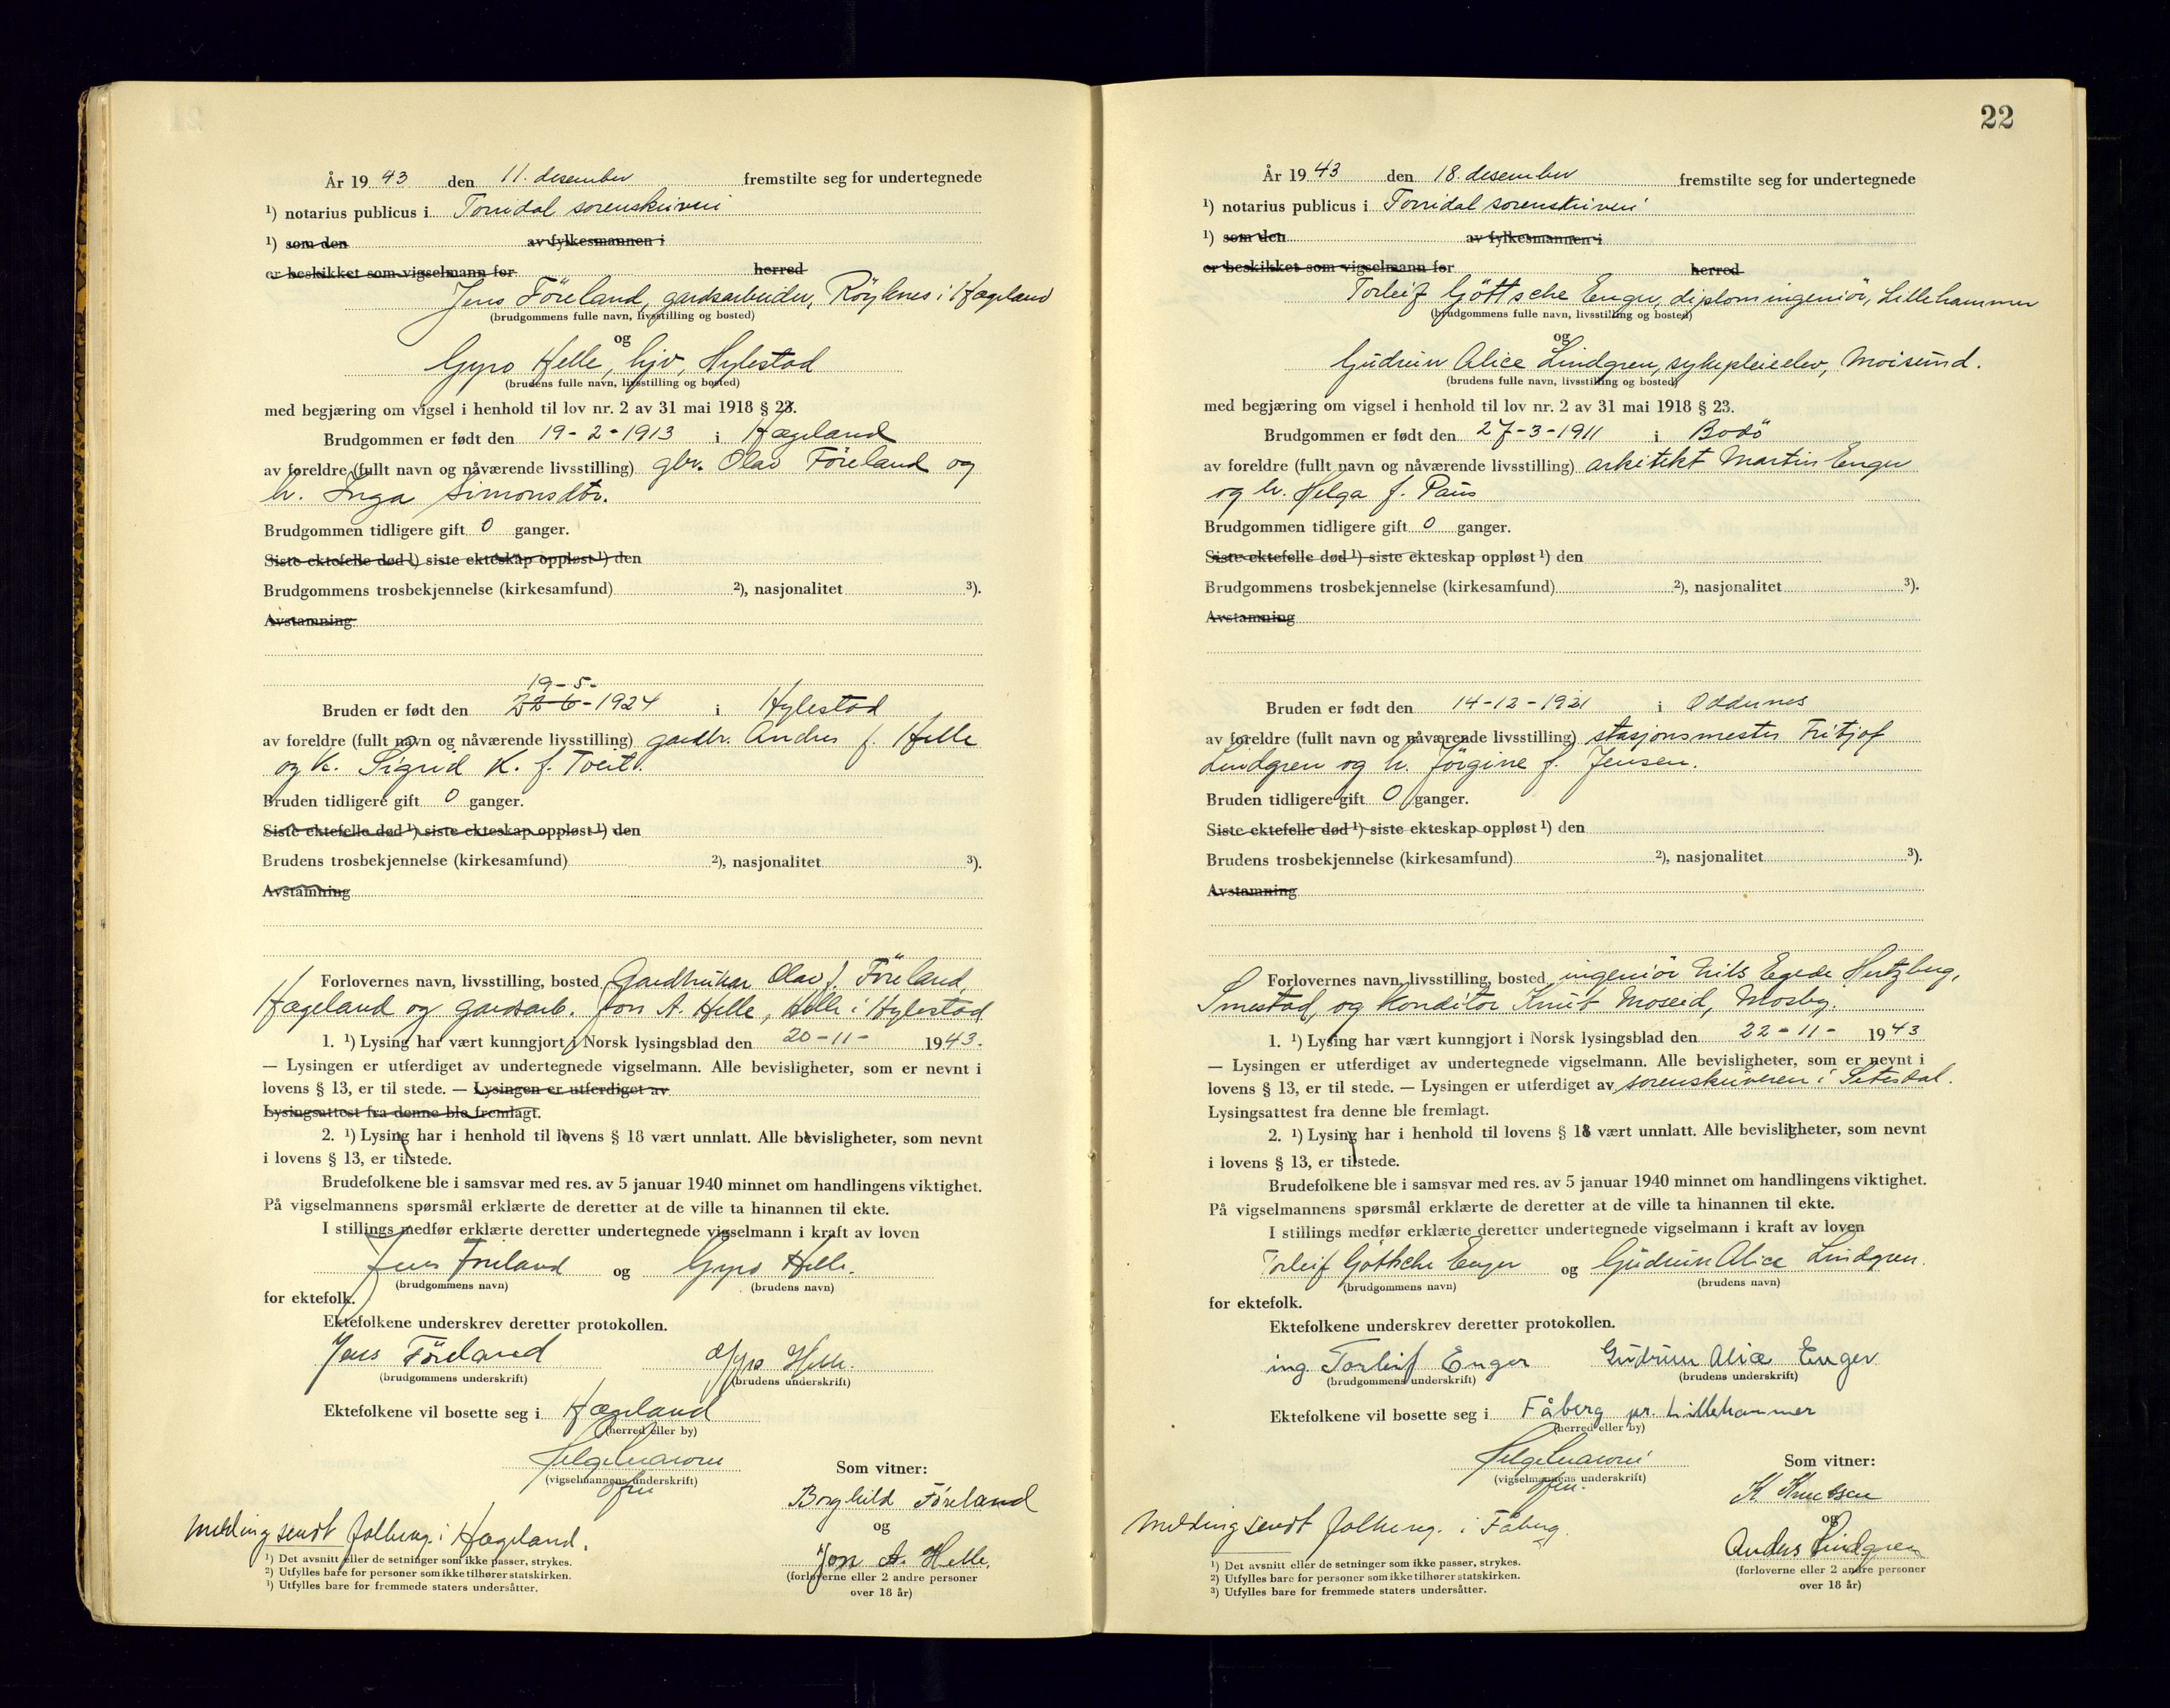 År 19 43 den 11. desember fremstilte seg for undertegnede
¹) notarius publicus i Torridal sorenskriveri
¹) som den av fylkesmannen i
er beskikket som vigselmann for herred
Jens Föreland, gardsarbeider, Röyknes i Hægeland
(brudgommens fulle navn, livsstilling og bosted)
og
Gyro Helle, hjv, Hylestad
(brudens fulle navn, livsstilling og bosted)
med begjæring om vigsel i henhold til lov nr. 2 av 31 mai 1918 § 23.
Brudgommen er født den 19-2-1913 i Hægeland
av foreldre (fullt navn og nåværende livsstilling) gbr. Olav Föreland og
h. Inga Simonsdtr.
Brudgommen tidligere gift 0 ganger.
Siste ektefelle død ¹) siste ekteskap oppløst ¹) den
Brudgommens trosbekjennelse (kirkesamfund) ²), nasjonalitet ³).
Avstamning
19-5-
22-6-1924
Bruden er født den i Hylestad
av foreldre (fullt navn og nåværende livsstilling) gardbr. Andres J. Helle
og h. Sigrid K. f. Tveit.
Bruden tidligere gift 0 ganger.
Siste ektefelle død ¹) siste ekteskap oppløst ¹) den
Brudens trosbekjennelse (kirkesamfund) ²), nasjonalitet ³).
Avstamning
Forlovernes navn, livsstilling, bosted Gardbruker Olav J. Föreland,
Hægeland og gardsarb. Jon A. Helle, Helle i Hylestad
1. ¹) Lysing har vært kunngjort i Norsk lysingsblad den 20-11- 1943.
— Lysingen er utferdiget av undertegnede vigselmann. Alle bevisligheter, som er nevnt i
lovens § 13, er til stede. — Lysingen er utferdiget av
Lysingsattest fra denne ble fremlagt.
2. ¹) Lysing har i henhold til lovens § 18 vært unnlatt. Alle bevisligheter, som nevnt
i lovens § 13, er tilstede.
Brudefolkene ble i samsvar med res. av 5 januar 1940 minnet om handlingens viktighet.
På vigselmannens spørsmål erklærte de deretter at de ville ta hinannen til ekte.
I stillings medfør erklærte deretter undertegnede vigselmann i kraft av loven
Jens Föreland og Gyro Helle.
(brudgommens navn) (brudens navn)
for ektefolk.
Ektefolkene underskrev deretter protokollen.
Jens Föreland Gyro Helle.
(brudgommens underskrift) (brudens underskrift)
Ektefolkene vil bosette seg i Hægeland
(herred eller by)
(vigselmannens underskrift)
Som vitner:
Borghild Föreland
og
Jon A. Helle.
(forloverne eller 2 andre personer
over 18 år)
Melding sendt folkereg. i Hægeland.
¹) Det avsnitt eller de setninger som ikke passer, strykes.
²) Utfylles bare for personer som ikke tilhører statskirken.
³) Utfylles bare for fremmede staters undersåtter.
22
År 19 43 den 18. desember fremstilte seg for undertegnede
¹) notarius publicus i Torridal sorenskriveri
¹) som den av fylkesmannen i
er beskikket som vigselmann for herred
Torleif Göttsche Enger, diplomingeniör, Lillehammer
(brudgommens fulle navn, livsstilling og bosted)
og
Gudrun Alice Lindgren, sykepleieelev, Moisund.
(brudens fulle navn, livsstilling og bosted)
med begjæring om vigsel i henhold til lov nr. 2 av 31 mai 1918 § 23.
Brudgommen er født den 27-3-1911 i Bodö
av foreldre (fullt navn og nåværende livsstilling) arkitekt Martin Enger
og h. Helga f. Paus
Brudgommen tidligere gift 0 ganger.
Siste ektefelle død ¹) siste ekteskap oppløst ¹) den
Brudgommens trosbekjennelse (kirkesamfund) ²), nasjonalitet ³).
Avstamning
Bruden er født den 14-12-1921 i Oddernes
av foreldre (fullt navn og nåværende livsstilling) stasjonsmester Fritjof
Lindgren og h. Jörgine f. Jensen.
Bruden tidligere gift 0 ganger.
Siste ektefelle død ¹) siste ekteskap oppløst ¹) den
Brudens trosbekjennelse (kirkesamfund) ²), nasjonalitet ³).
Avstamning
Forlovernes navn, livsstilling, bosted ingeniör Nils Egede Hertzberg,
Smestad, og konditor Knut Moseid, Mosby.
1. ¹) Lysing har vært kunngjort i Norsk lysingsblad den 22-11- 1943
— Lysingen er utferdiget av undertegnede vigselmann. Alle bevisligheter, som er nevnt i
lovens § 13, er til stede. — Lysingen er utferdiget av sorenskriveren i Setesdal.
Lysingsattest fra denne ble fremlagt.
2. ¹) Lysing har i henhold til lovens § 18 vært unnlatt. Alle bevisligheter, som nevnt
i lovens § 13, er tilstede.
Brudefolkene ble i samsvar med res. av 5 januar 1940 minnet om handlingens viktighet.
På vigselmannens spørsmål erklærte de deretter at de ville ta hinannen til ekte.
I stillings medfør erklærte deretter undertegnede vigselmann i kraft av loven
Torleif Göttsche Enger og Gudrun Alice Lindgren.
(brudgommens navn) (brudens navn)
for ektefolk.
Ektefolkene underskrev deretter protokollen.
ing Torleif Enger Gudrun Alice Enger
(brudgommens underskrift) (brudens underskrift)
Ektefolkene vil bosette seg i Fåberg pr. Lillehammer
(herred eller by)
(vigselmannens underskrift)
Som vitner:
K. Knutsen
og
Anders Lindgren
(forloverne eller 2 andre personer
over 18 år)
Melding sendt folkereg. i Fåberg.
¹) Det avsnitt eller de setninger som ikke passer, strykes.
²) Utfylles bare for personer som ikke tilhører statskirken.
³) Utfylles bare for fremmede staters undersåtter.